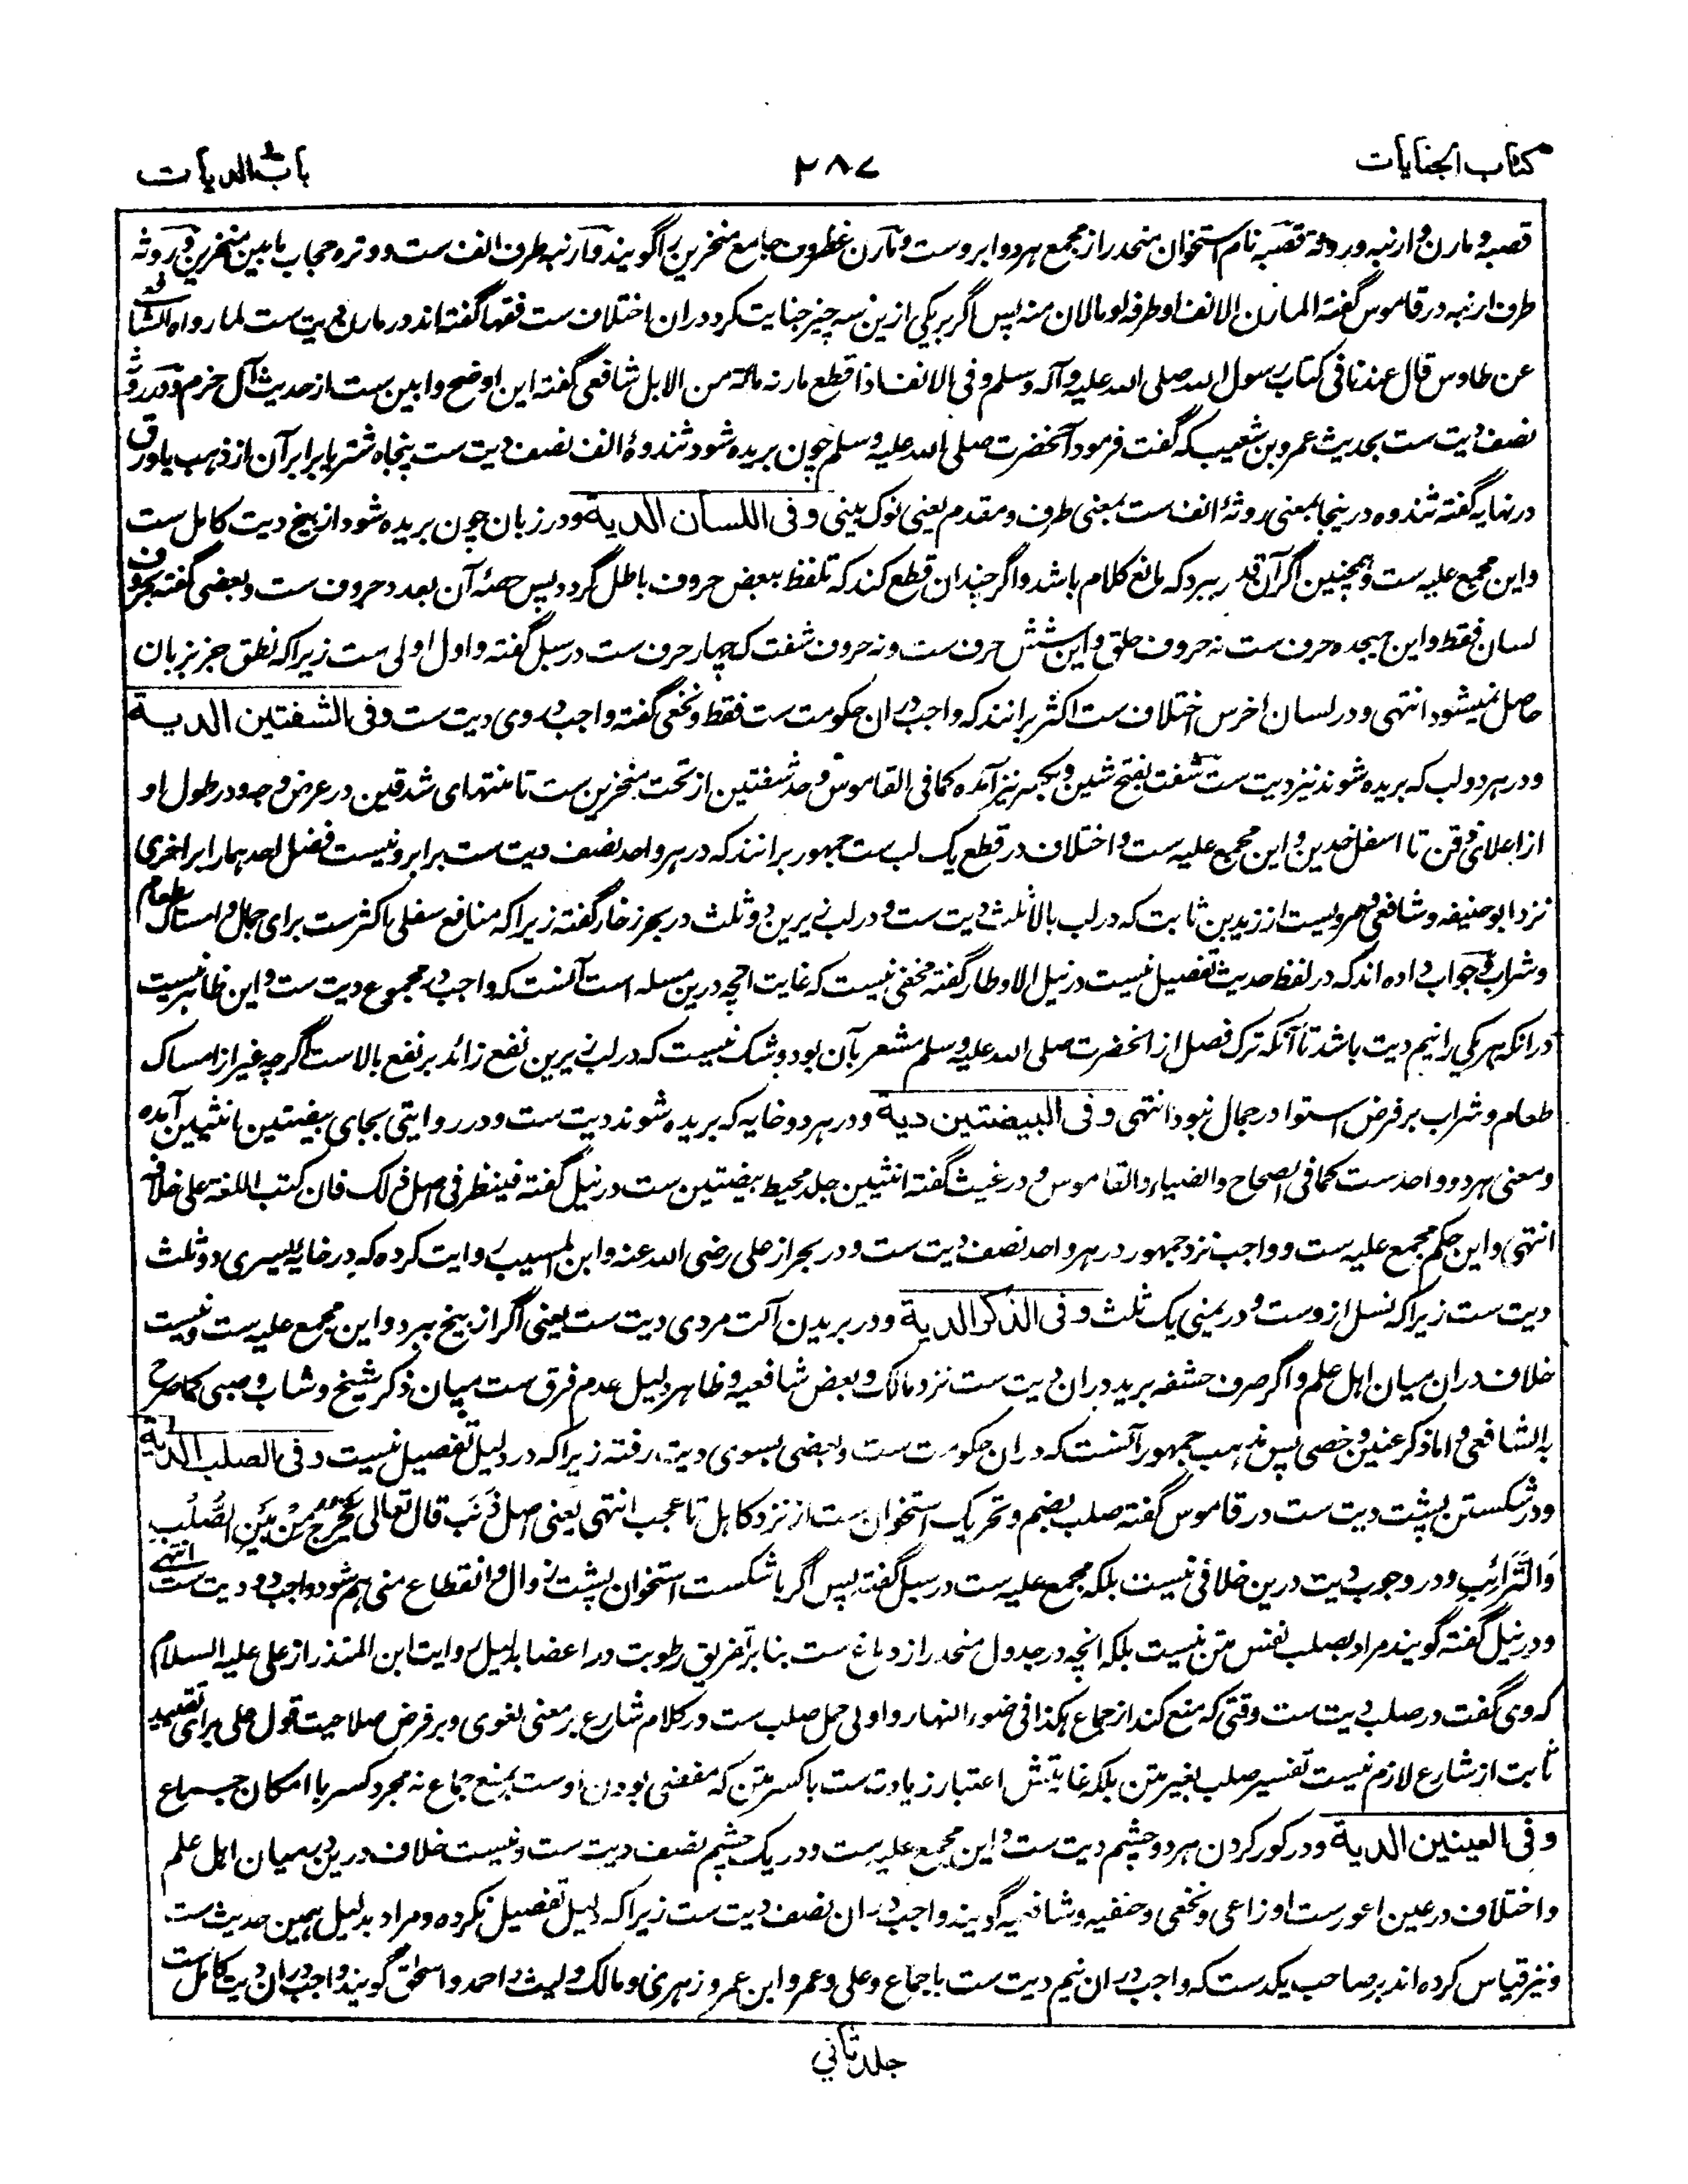 کتاب الجنایات
۲۸۷
باب الدیات
قصبه و مارن و ارنبه و روثه قصبه نام استخوان منحدر از مجمع هر دو ابروست و مارن غطروف جامع منخرین را گویند و ارنبه طرف انف ست و وتره حجاب ما بین منخرین و روثه
طرف ارنبه در قاموس گفته المارن الانف او طرفه او ما لان منه پس اگر بر یکی ازین سه چیز جنایت کرد دران اختلاف ست فقها گفته اند در مارن دیت ست لما رواه الشافعی
عن طاوس قال عندنا فی کتاب رسول الله صلی الله علیه و آله وسلم و فی الانف اذا قطع مارنه مائة من الابل شافعی گفته این اوضح و ابین ست از حدیث آل حزم و در روثه
نصف دیت ست بحدیث عمرو بن شعیب که گفت فرمود آنحضرت صلی الله علیه وسلم چون بریده شود ثندوهٔ انف نصف دیت ست پنجاه شتر یا برابر آن از ذهب یا ورق
در نهایه گفته ثندوه درینجا بمعنی روثهٔ انف ست بمعنی طرف و مقدم یعنی نوک بینی و فی اللسان الدیة و در زبان چون بریده شود از بیخ دیت کامل ست
و این مجمع علیه ست و همچنین اگر آن قدر ببرد که مانع کلام باشد و اگر چندان قطع کند که تلفظ ببعض حروف باطل گردد پس حصهٔ آن بعدد حروف ست و بعضی گفته بحروف
لسان فقط و این هیجده حرف ست نه حروف حلق و این شش حرف ست و نه حروف شفت که چهار حرف ست در سبل گفته و اول اولی ست زیرا که نطق جز بزبان
حاصل نمیشود انتهی و در لسان اخرس اختلاف ست اکثر برانند که واجب دران حکومت ست فقط و نخعی گفته واجب در وی دیت ست و فی الشفتین الدیة
و در هر دو لب که بریده شوند نیز دیت ست شفت بفتح شین و بکسر نیز آمده کما فی القاموس و حد شفتین از تحت منخرین ست تا منتهای شدقین در عرض وجه و در طول او
از اعلای ذقن تا اسفل خدین و این مجمع علیه ست و اختلاف در قطع یک لب ست جمهور برانند که در هر واحد نصف دیت ست برابر و نیست فضل احدهما را بر اخری
نزد ابو حنیفه و شافعی و مرویست از زید بن ثابت که در لب بالا ثلث دیت ست و در لب زیرین دو ثلث در بحر زخار گفته زیرا که منافع سفلی اکثرست برای جمال و امساک طعام
و شراب و جواب داده اند که در لفظ حدیث تفصیل نیست در نیل الاوطار گفته مخفی نیست که غایت انچه درین مسله است آنست که واجب در مجموع دیت ست و این ظاهر نیست
درانکه هر یکی را نیم دیت باشد تا آنکه ترک فصل از انحضرت صلی الله علیه وسلم مشعر بآن بود و شک نیست که در لب زیرین نفع زائد بر نفع بالاست اگر چه غیر از امساک
طعام و شراب بر فرض استوا در جمال نبود انتهی و فی البیضتین دیة و در هر دو خایه که بریده شوند دیت ست و در روایتی بجای بیضتین انثیین آمده
و معنی هر دو واحدست کما فی الصحاح والضیاء والقاموس و در غیث گفته انثیین جلد محیط ببیضتین ست در نیل گفته فینظر فی اصل ذلک فان کتب اللغة علی خلافه
انتهی و این حکم مجمع علیه ست و واجب نزد جمهور در هر واحد نصف دیت ست و در بحر از علی رضی الله عنه و ابن المسیب روایت کرده که در خایهٔ یسری دو ثلث
دیت ست زیرا که نسل ازوست و در یمنی یک ثلث و فی الذکر الدیة و در بریدن آلت مردی دیت ست یعنی اگر از بیخ ببرد و این مجمع علیه ست و نیست
خلاف دران میان اهل علم و اگر صرف حشفه برید دران دیت ست نزد مالک و بعض شافعیه و ظاهر دلیل عدم فرق ست میان ذکر شیخ و شاب و صبی کما صرح
به الشافعی و اما ذکر عنین و خصی پس مذهب جمهور آنست که دران حکومت ست و بعضی بسوی دیت رفته زیرا که در دلیل تفصیل نیست و فی الصلب الدیة
و در شکستن پشت دیت ست در قاموس گفته صلب بضم و تحریک استخوان ست از نزد کاهل تا عجب انتهی یعنی اصل ذنب قال تعالی یَخْرُجُ مِنْ بَیْنِ الصُّلْبِ
وَالتَّرَائِبِ و در وجوب دیت درین خلافی نیست بلکه مجمع علیه ست در سبل گفته پس اگر با شکست استخوان پشت زوال و انقطاع منی هم شود واجب دو دیت ست انتهی
و در نیل گفته گویند مراد بصلب نفس متن نیست بلکه انچه در جدول منحدر از دماغ ست بنا بر تفریق رطوبت در اعضا بدلیل روایت ابن المنذر از علی علیه السلام
که وی گفت در صلب دیت ست وقتی که منع کند از جماع هکذا فی ضوء النهار و اولی حمل صلب ست در کلام شارع بر معنی لغوی و بر فرض صلاحیت قول علی برای تقیید
ثابت از شارع لازم نیست تفسیر صلب بغیر متن بلکه غایتش اعتبار زیادت ست با کسر متن که مفضی بودن اوست بمنع جماع نه مجرد کسر با امکان جماع
و فی العینین الدیة و در کور کردن هر دو چشم دیت ست و این مجمع علیه ست و در یک چشم نصف دیت ست و نیست خلاف درین میان اهل علم
و اختلاف در عین اعورست اوزاعی و نخعی و حنفیه و شافعیه گویند واجب دران نصف دیت ست زیرا که دلیل تفصیل نکرده و مراد بدلیل همین حدیث ست
و نیز قیاس کرده اند بر صاحب یکدست که واجب دران نیم دیت ست باجماع و علی و عمر و ابن عمر و زهری و مالک و لیث و احمد و اسحق گویند واجب دران دیت کامل ست
جلد ثانی